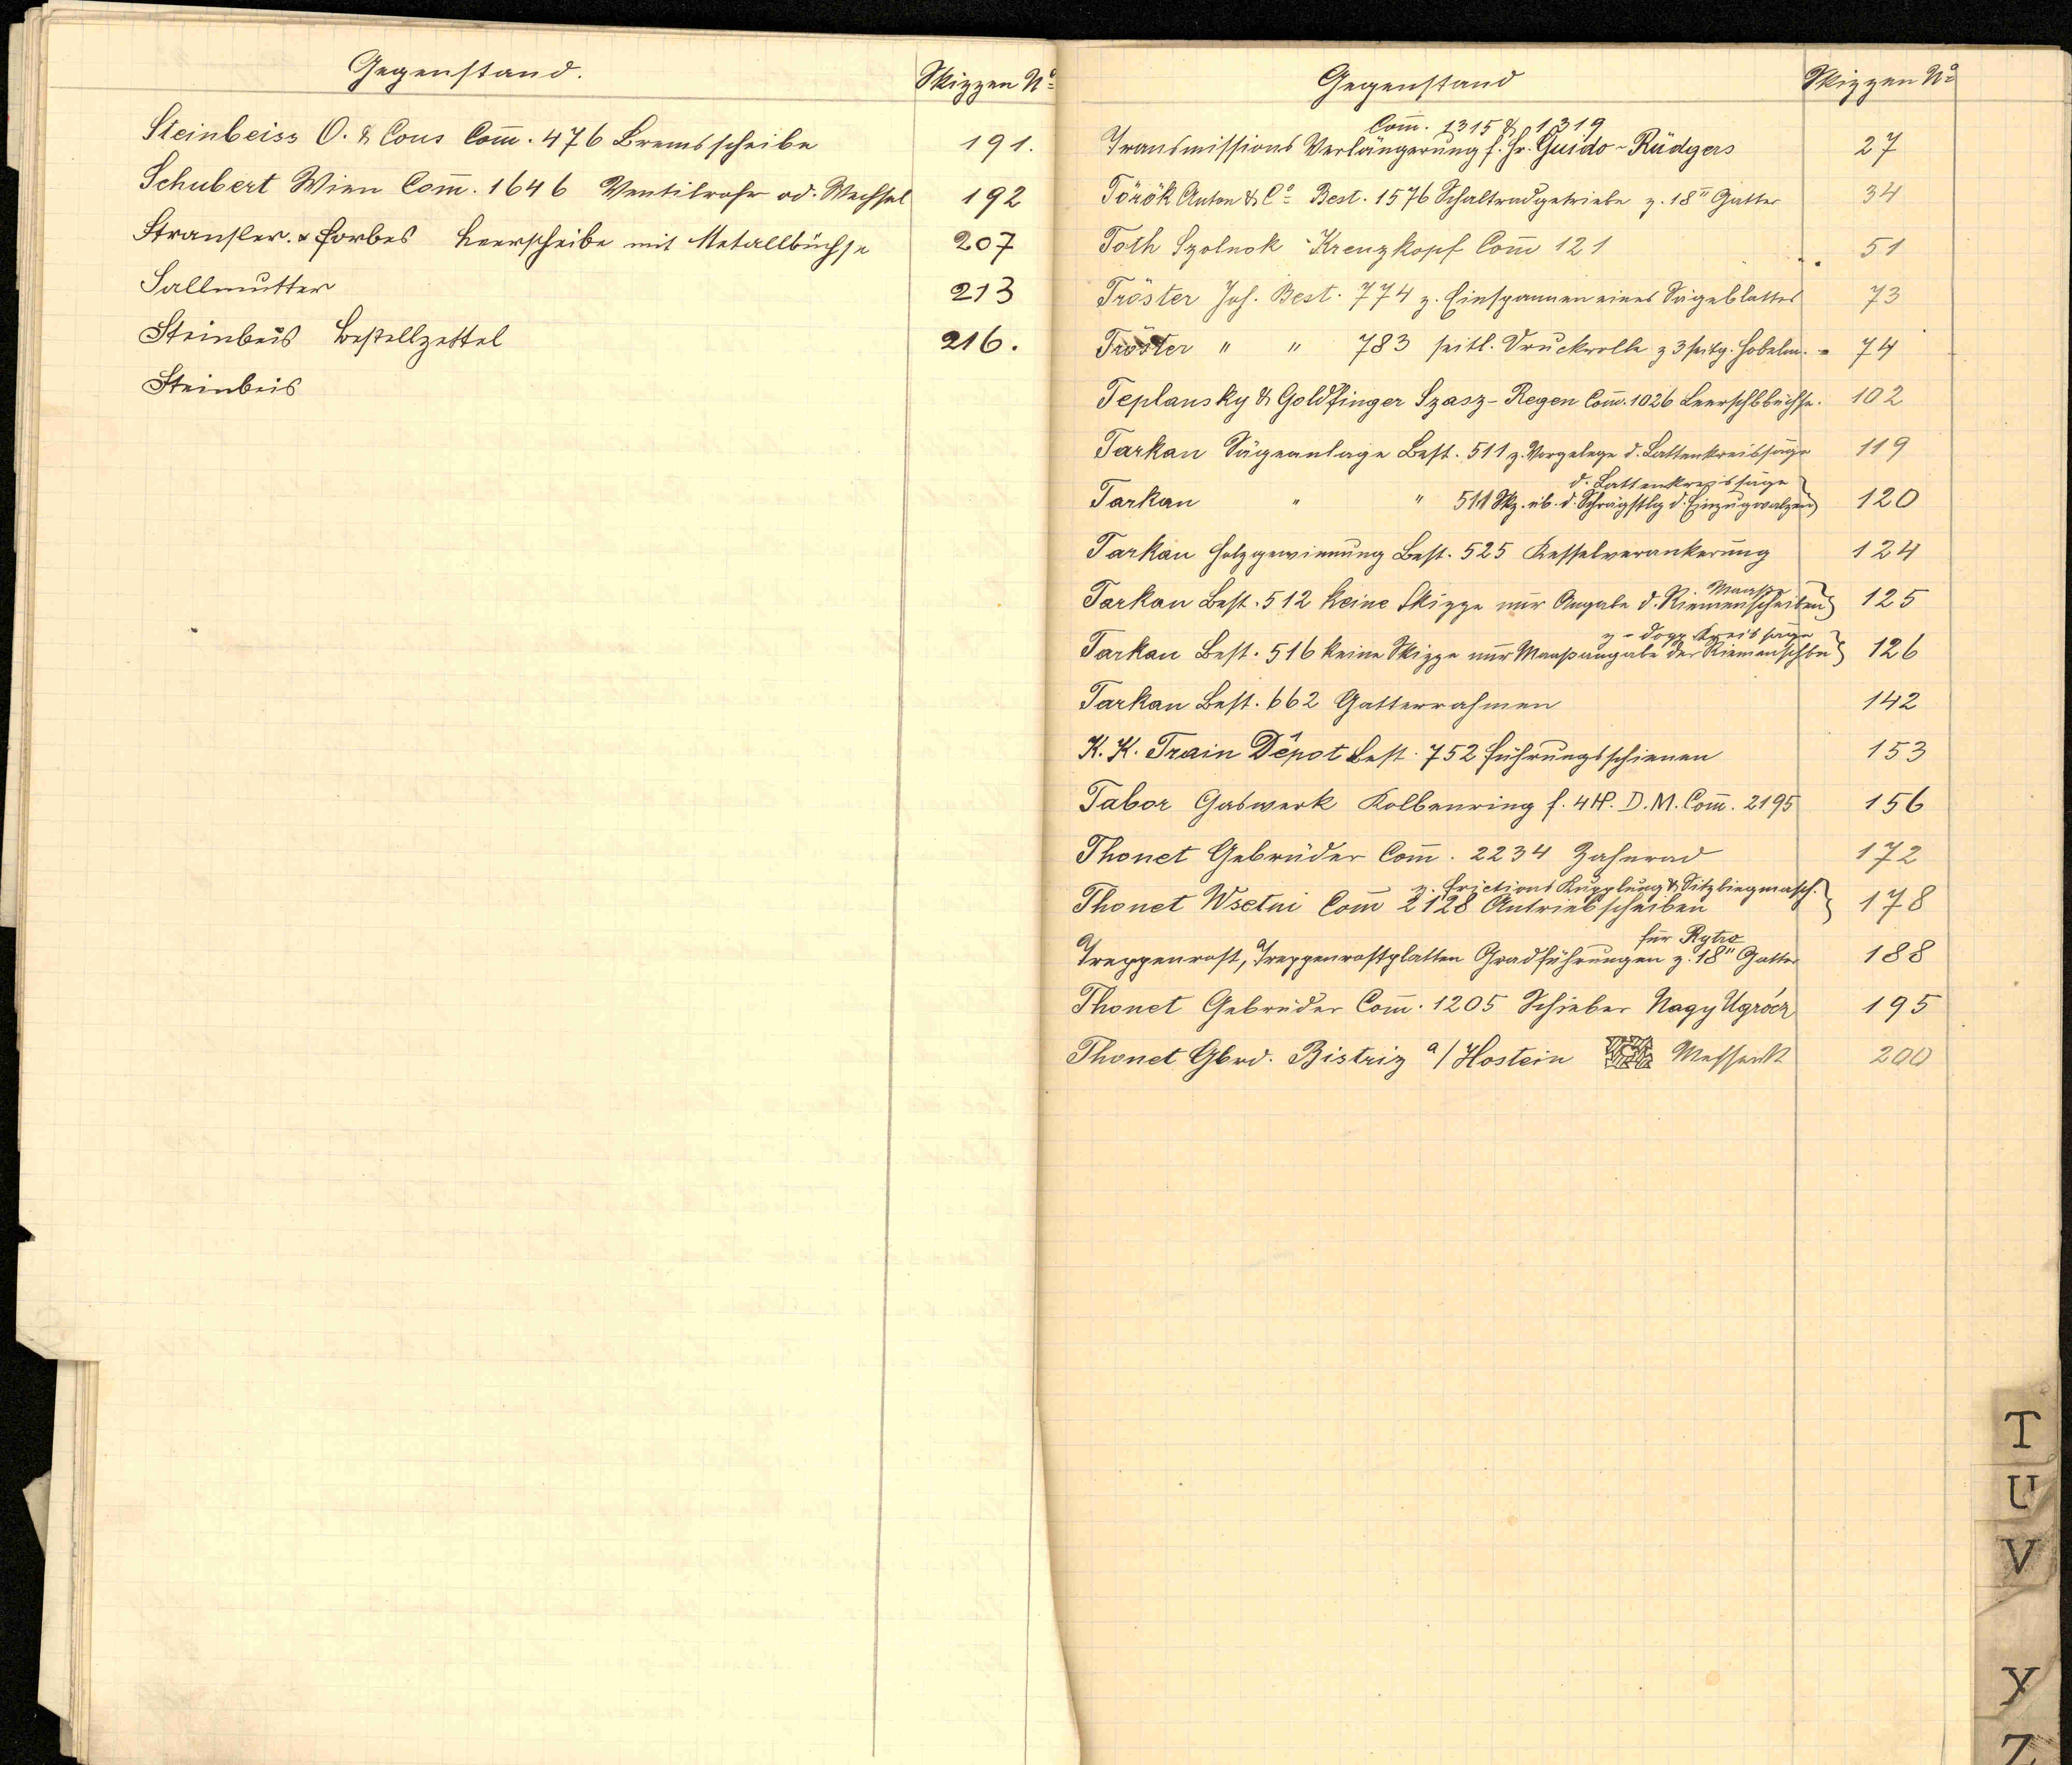 Gegenstand. Skizzen No
Steinbeiss O. & Cons Com̅. 476 Bremsscheibe 191.
Schubert Wien Com̅. 1646 Ventilrohr od. Wechsel 192
Stransler. & Forbes Leerscheibe mit Metallbüchse 207
Sallmutter 213
Steinbeis Bestellzettel 216.
Steinbeis
Gegenstand Skizzen No
Com̅. 1315 & 1319
Transmissions Verlängerung f. Hr. Guido-Rüdgers 27
Török Anton & Co Best. 1576 Schaltradgetriebe z. 18" Gatter 34
Toth Szolnok Kreuzkopf Com̅ 121 51
Tröster Joh. Best. 774 z. Einspannen eines Sägeblattes 73
Tröster " " 783 seitl. Druckrolle z 3 seitg. Hobelm. 74
Teplansky & Goldfinger Szasz-Regen Com̅. 1026 Leerschbbüchse. 102
Tarkan Sägeanlage Best. 511 z. Vorgelege d. Lattenkreissäge 119
d. Lattenkreissäge
Tarkan " " 511 Skz. üb. d. Schrägstlg d. Einzugwalzen 120
Tarkau Holzgewinnung Best. 525 Kesselverankerung 124
Maaße
Tarkau Best. 512 keine Skizze nur Angabe d. Riemenscheiben 125
z - Dopp. Kreissäge
Tarkau Best. 516 keine Skizze nur Maaßangabe der Riemenschbn 126
Tarkau Best. 662 Gatterrahmen 142
K. K. Train Dêpot Best. 752 Führungsschienen 153
Tabor Gaswerk Kolbenring f. 4 HP. D. M. Com̅. 2195 156
Thonet Gebrüder Com̅. 2234 Zahnrad 172
z. Frictions Kupplung & Sitzbiegmasch.
Thonet Wsetni Com̅ 2128 Antriebscheiben 178
für Rytro
Treppenrost, Treppenrostplatten Gradführungen z. 18" Gatter 188
Thonet Gebrüder Com̅. 1205 Schieber Nagy Ugrócz 195
Thonet Gbrd. Bistriz a/Hostein 200
T
U
V
Y
Z